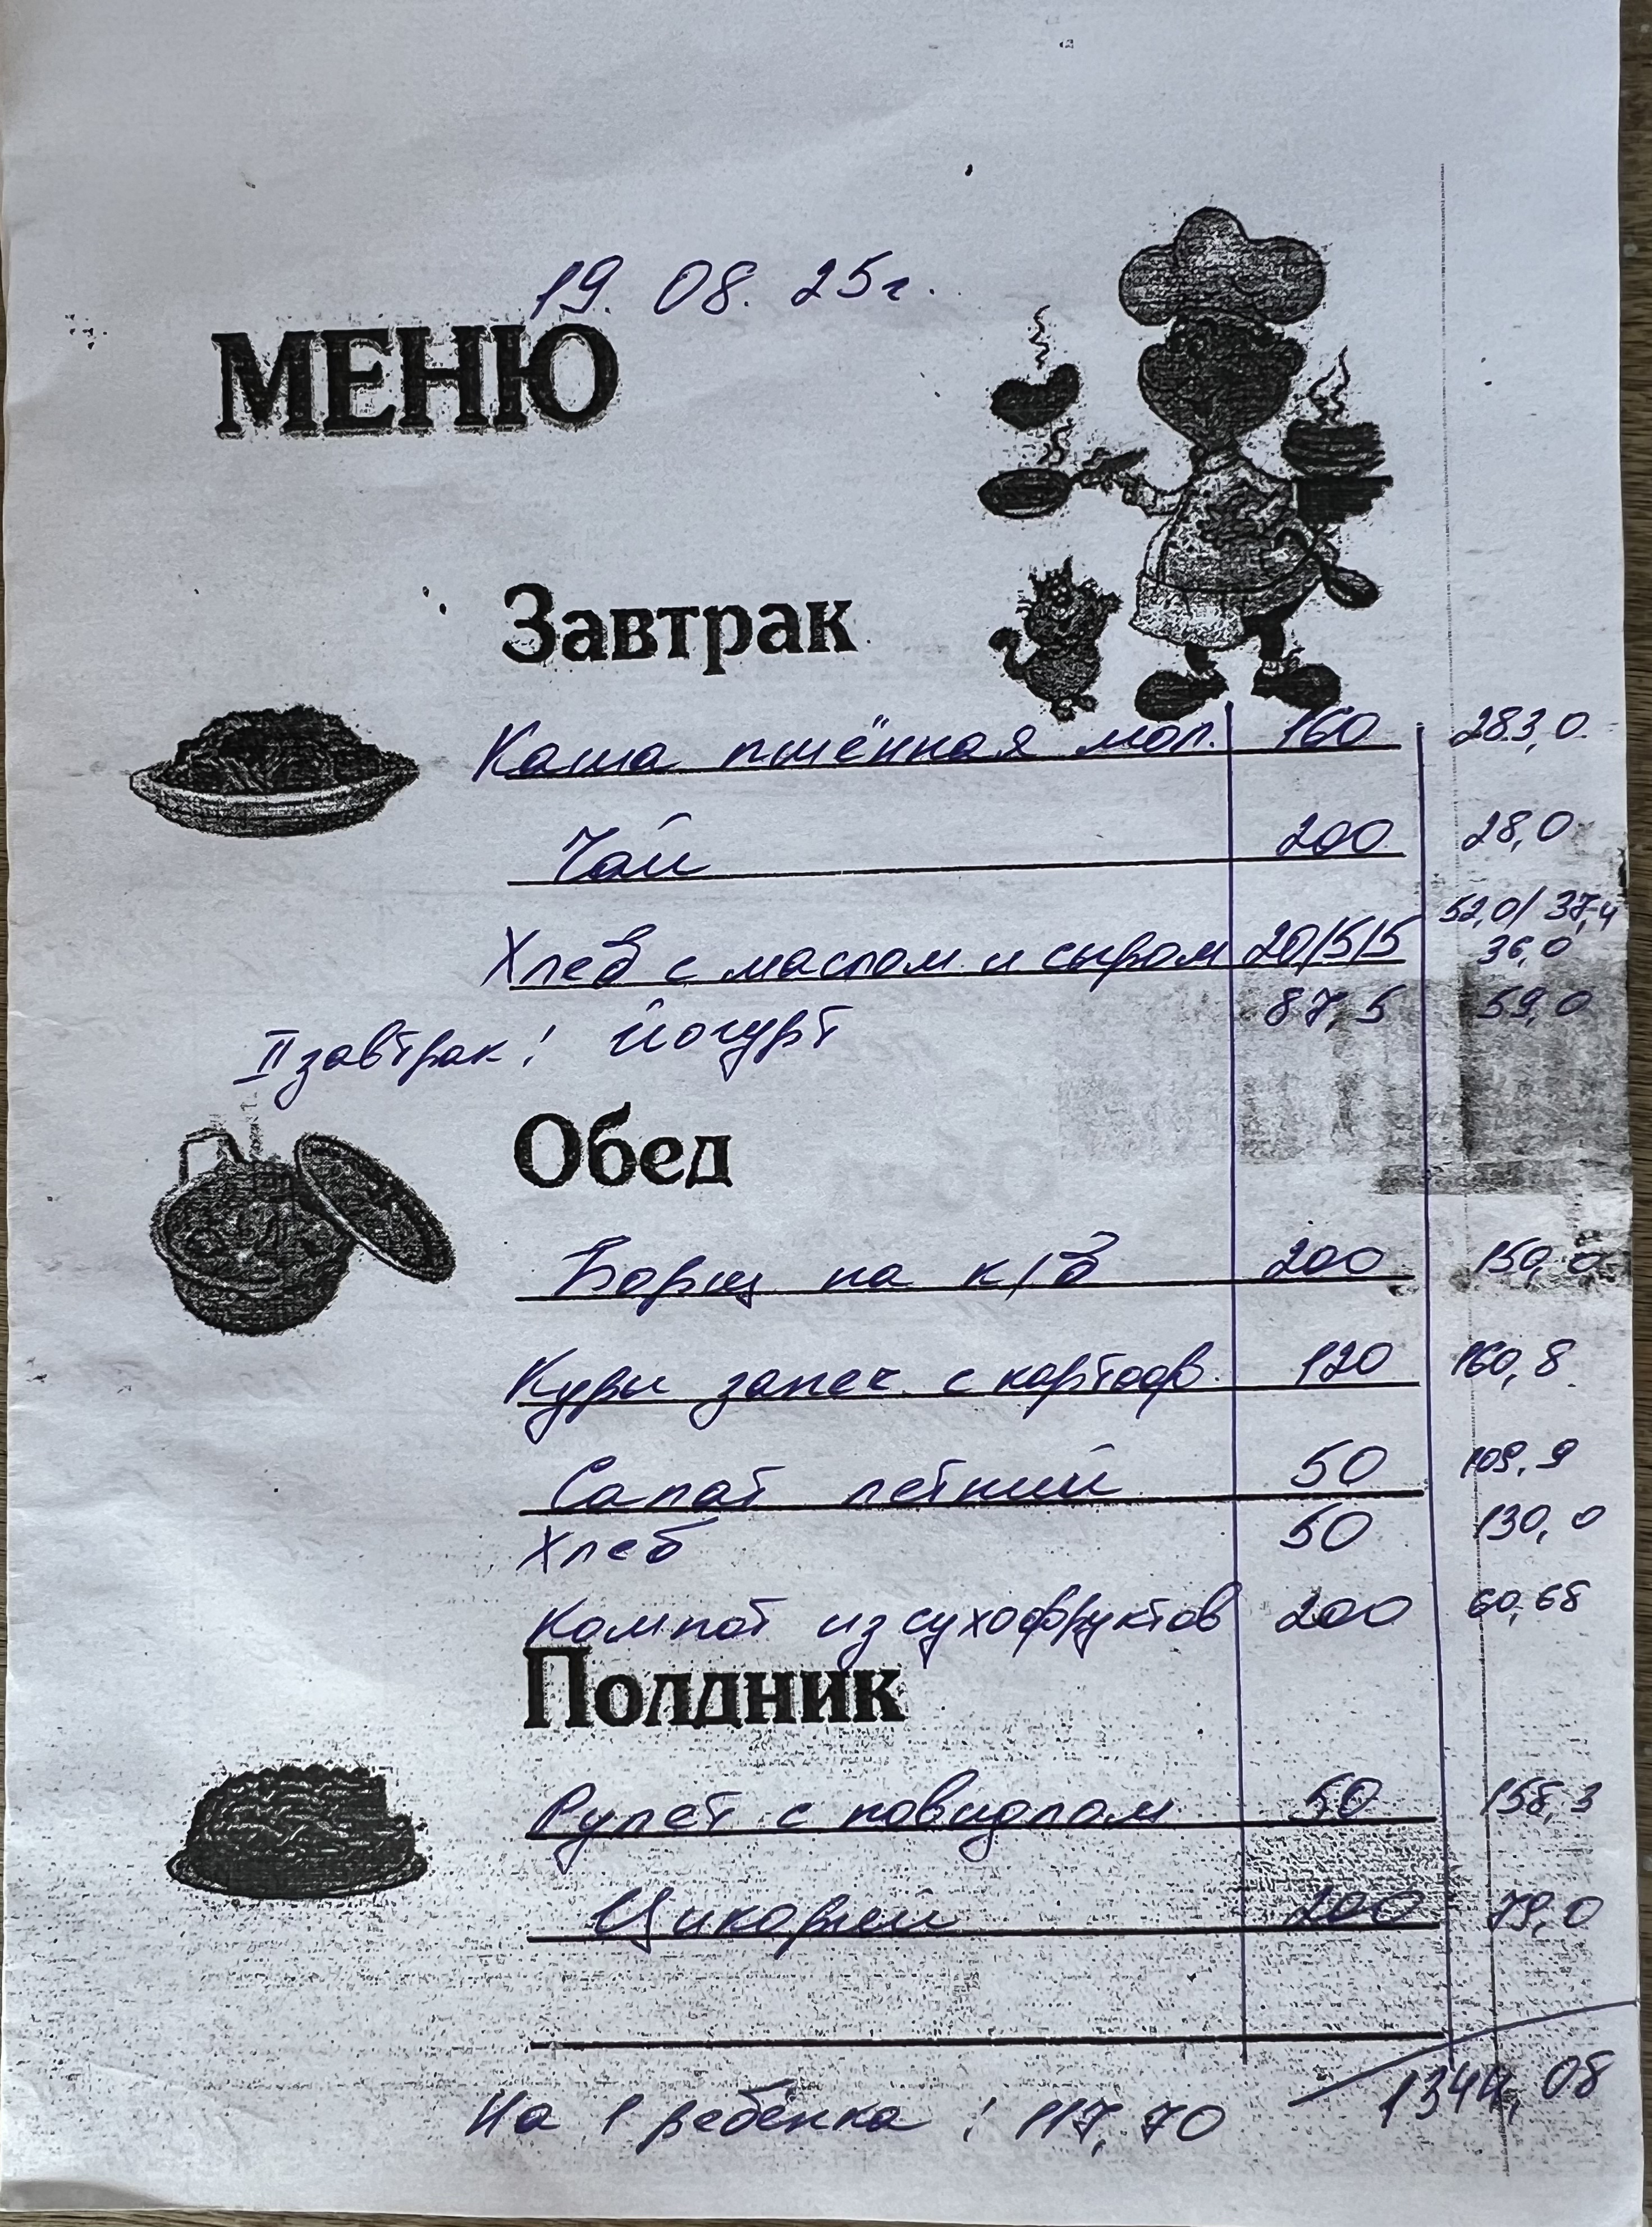 19. 08. 25г.
МЕНЮ
Завтрак
Каша пшённая мол. 160 283,0
Чай 200 28,0
Хлеб с маслом и сыром 20/5/5 52,0/ 37,4 36,0
II завтрак! йогурт 87,5 59,0
Обед
Борщ на к/б 200 150,0
Куры запеч. с картоф. 120 160,8
Салат летний 50 109,9
Хлеб 50 130,0
Компот из сухофруктов 200 60,68
Полдник
Рулет с повидлом 50 158,3
Цикорий 200 79,0
1344,08
На 1 ребёнка ! 117,70